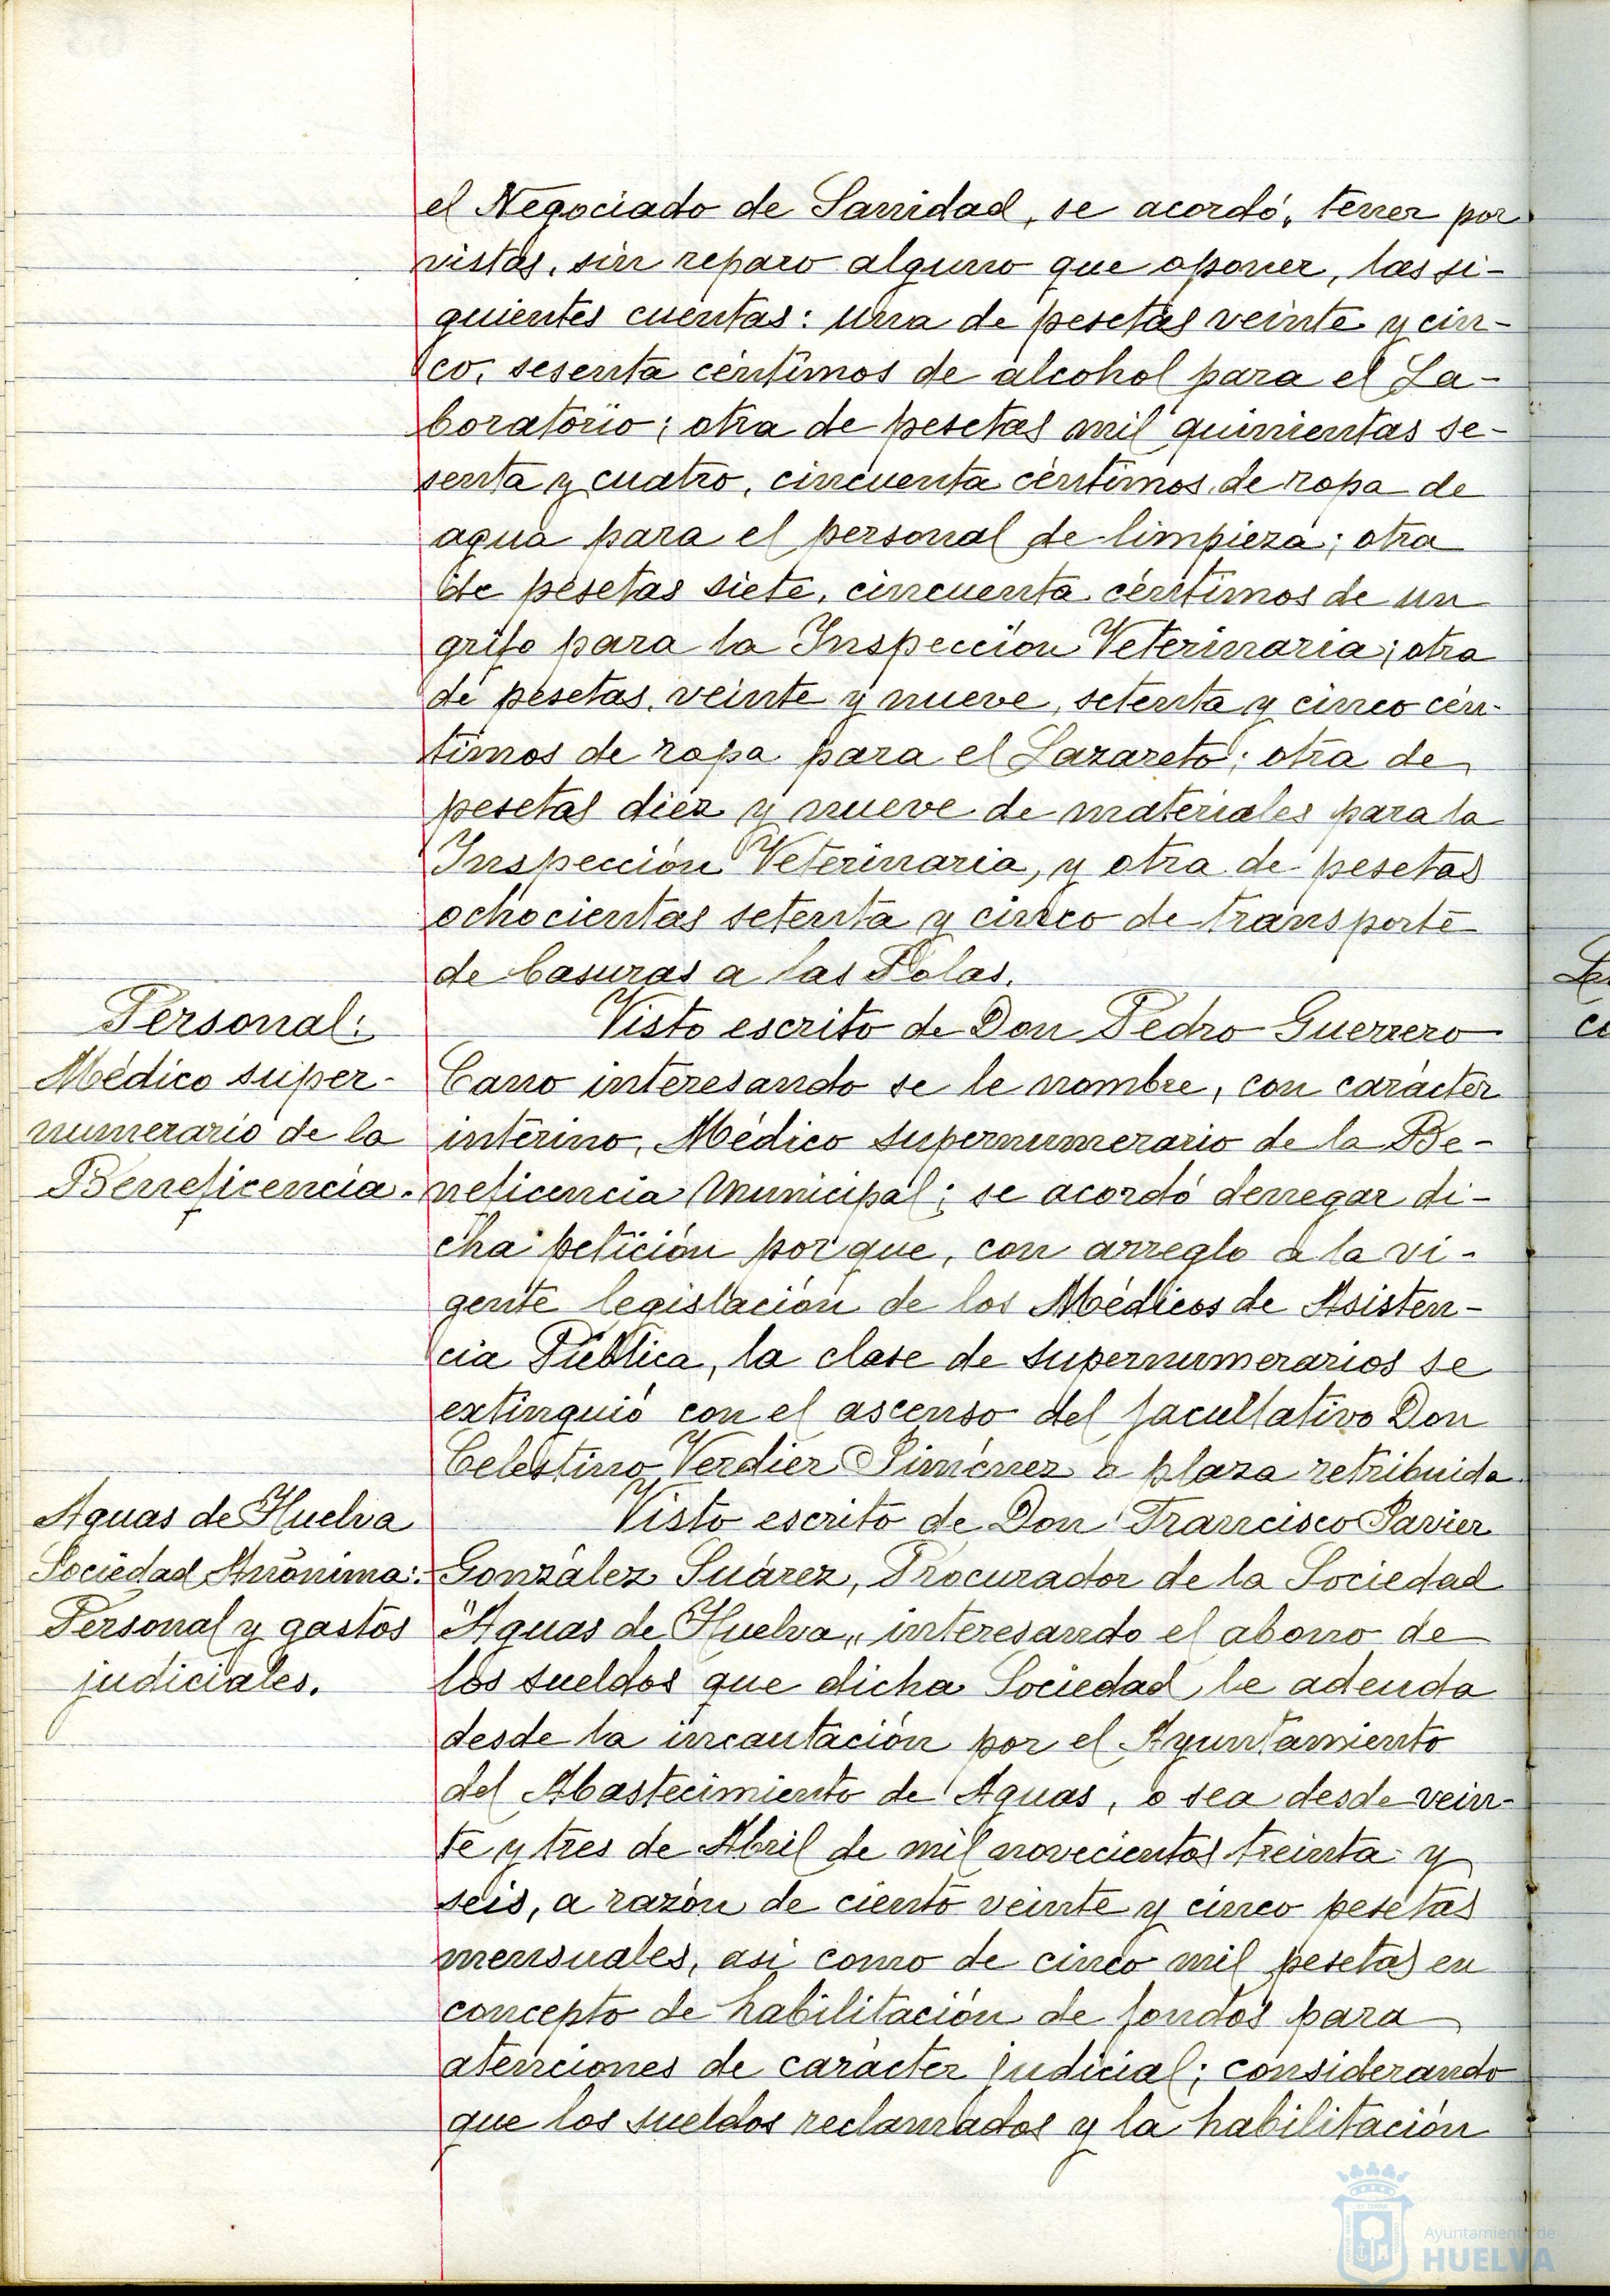 el Negociado de Sanidad, se acordó, tener por
vistas, sin reparo alguno que oponer, las si-
guientes cuentas: una de pesetas veinte y cin-
co, sesenta céntimos de alcohol para el La-
boratorio; otra de pesetas mil quinientas se-
senta y cuatro, cincuenta céntimos, de ropa de
agua para el personal de limpieza; otra
de pesetas siete, cincuenta céntimos de un
grifo para la Inspección Veterinaria; otra
de pesetas, veinte y nueve, setenta y cinco cén-
timos de ropa para el Lazareto; otra de
pesetas diez y nueve de materiales para la
Inspección Veterinaria, y otra de pesetas
ochocientas setenta y cinco de transporte
de basuras a las Tolas.
Personal:
Médico super-
numerario de la
Beneficencia.
Visto escrito de Don Pedro Guerrero
Cano interesando se le nombre, con carácter
interino, Médico supernumerario de la Be-
neficencia Municipal; se acordó denegar di-
cha petición porque, con arreglo a la vi-
gente legislación de los Médicos de Asisten-
cia Pública, la clase de supernumerarios se
extinguió con el ascenso del facultativo Don
Celestino Verdier Jiménez a plaza retribuida
Aguas de Huelva
Sociedad Anónima:
Personal y gastos
judiciales.
Visto escrito de Don Francisco Javier
González Suárez, Procurador de la Sociedad
"Aguas de Huelva„ interesando el abono de
los sueldos que dicha Sociedad le adeuda
desde la incautación por el Ayuntamiento
del Abastecimiento de Aguas, o sea desde vein-
te y tres de Abril de mil novecientos treinta y
seis, a razón de ciento veinte y cinco pesetas
mensuales, asi como de cinco mil pesetas en
concepto de habilitación de fondos para
atenciones de carácter judicial; considerando
que los sueldos reclamados y la habilitación
Ayuntamiento de
HUELVA